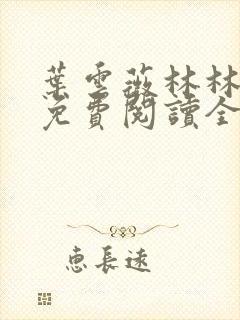 葉雲薇林林
免費閱讀全
惠長遠